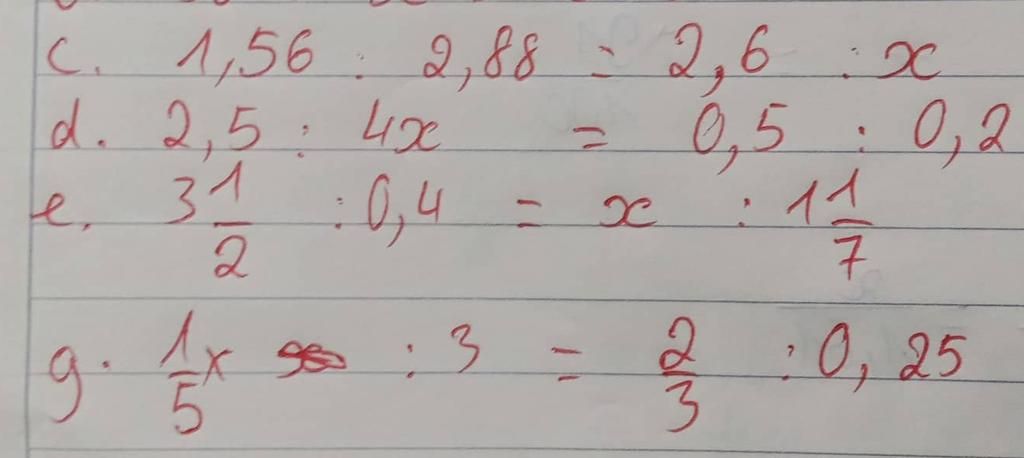 c. 1,56 : 2,88 = 2,6 : x
d. 2,5 : 4x = 0,5 : 0,2
e. 3 1/2 : 0,4 = x : 1 1/7
g. 1/5 x : 3 = 2/3 : 0,25